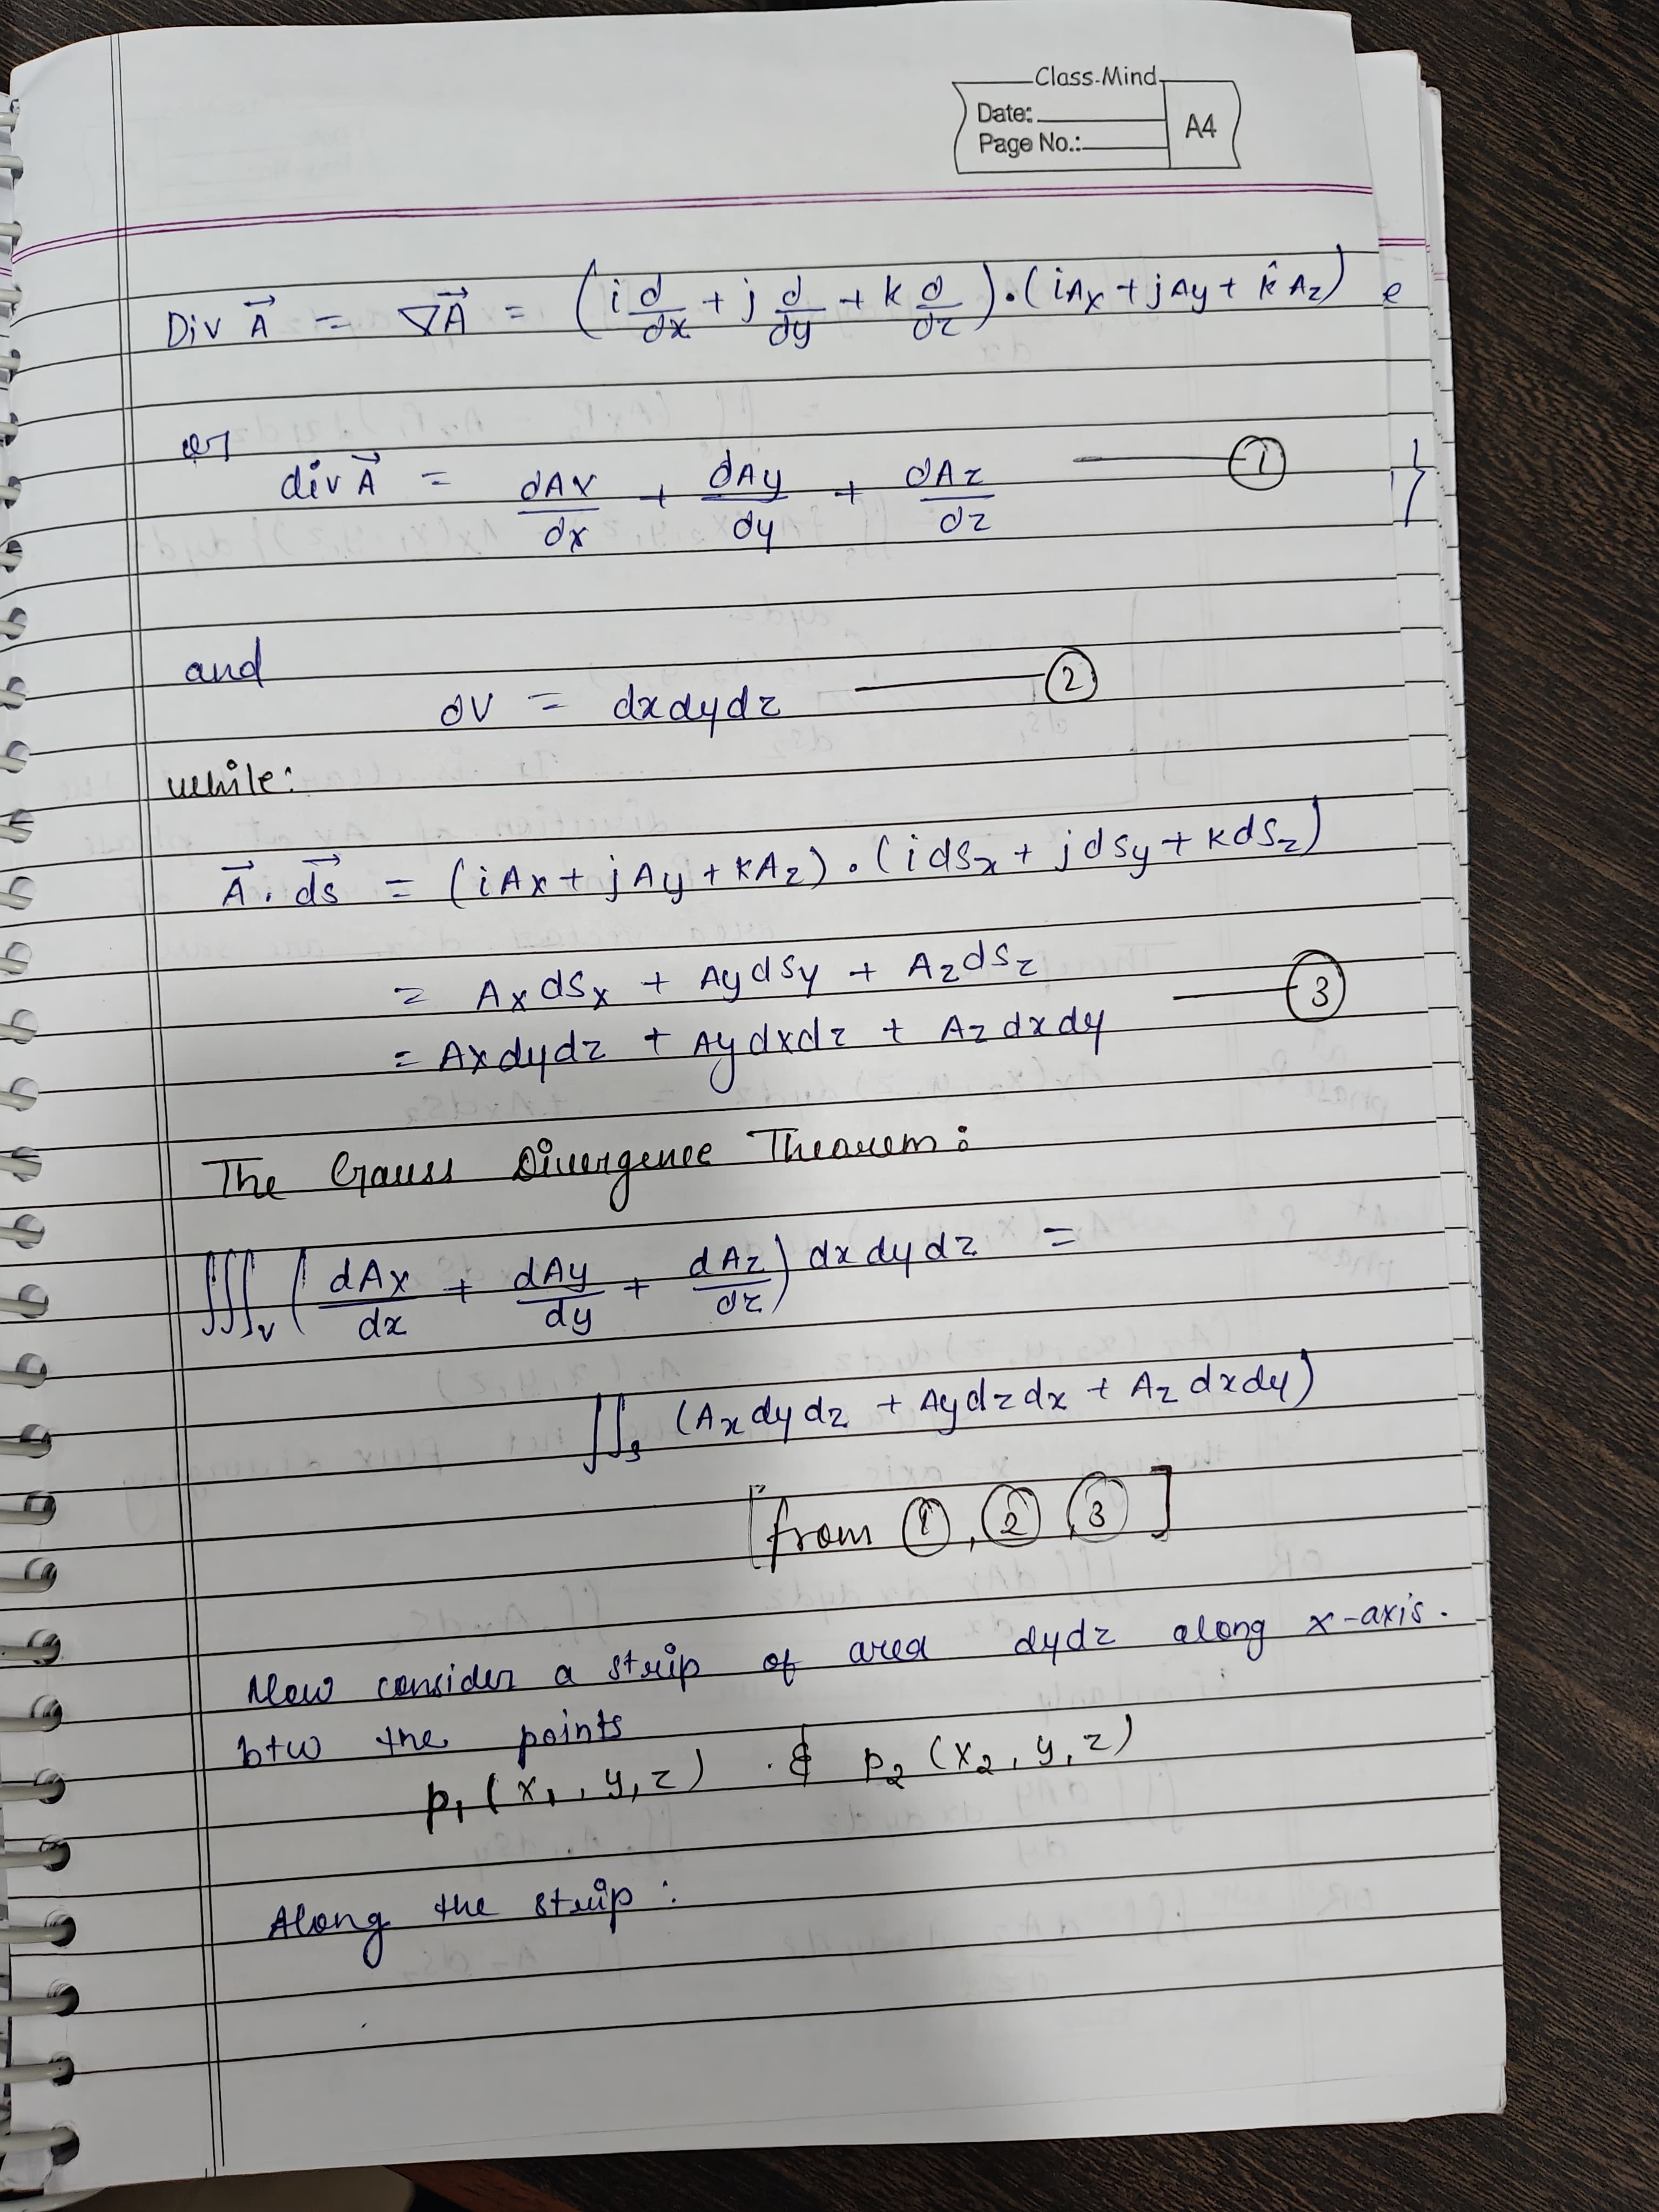 Class-Mind
Date:
Page No.:
A4
Div A⃗ = ∇A⃗ = (i d/dx + j d/dy + k d/dz) . (iAx + jAy + k̂ Az)
or
div A⃗ = dAx/dx + dAy/dy + dAz/dz —— ①
and
dV = dxdydz —— ②
while:
A⃗ . ds⃗ = (iAx + jAy + kAz) . (idsx + jdsy + kdsz)
= Ax dsx + Ay dsy + Az dsz
= Ax dydz + Ay dxdz + Az dxdy —— ③
The Gauss Divergence Theorem:
∭v (dAx/dx + dAy/dy + dAz/dz) dx dy dz =
∬s (Ax dy dz + Ay dz dx + Az dxdy)
[from ①, ②, ③]
Now consider a strip of area dydz along x-axis.
btw the points
p₁ (x₁, y, z) & p₂ (x₂, y, z)
Along the strip: